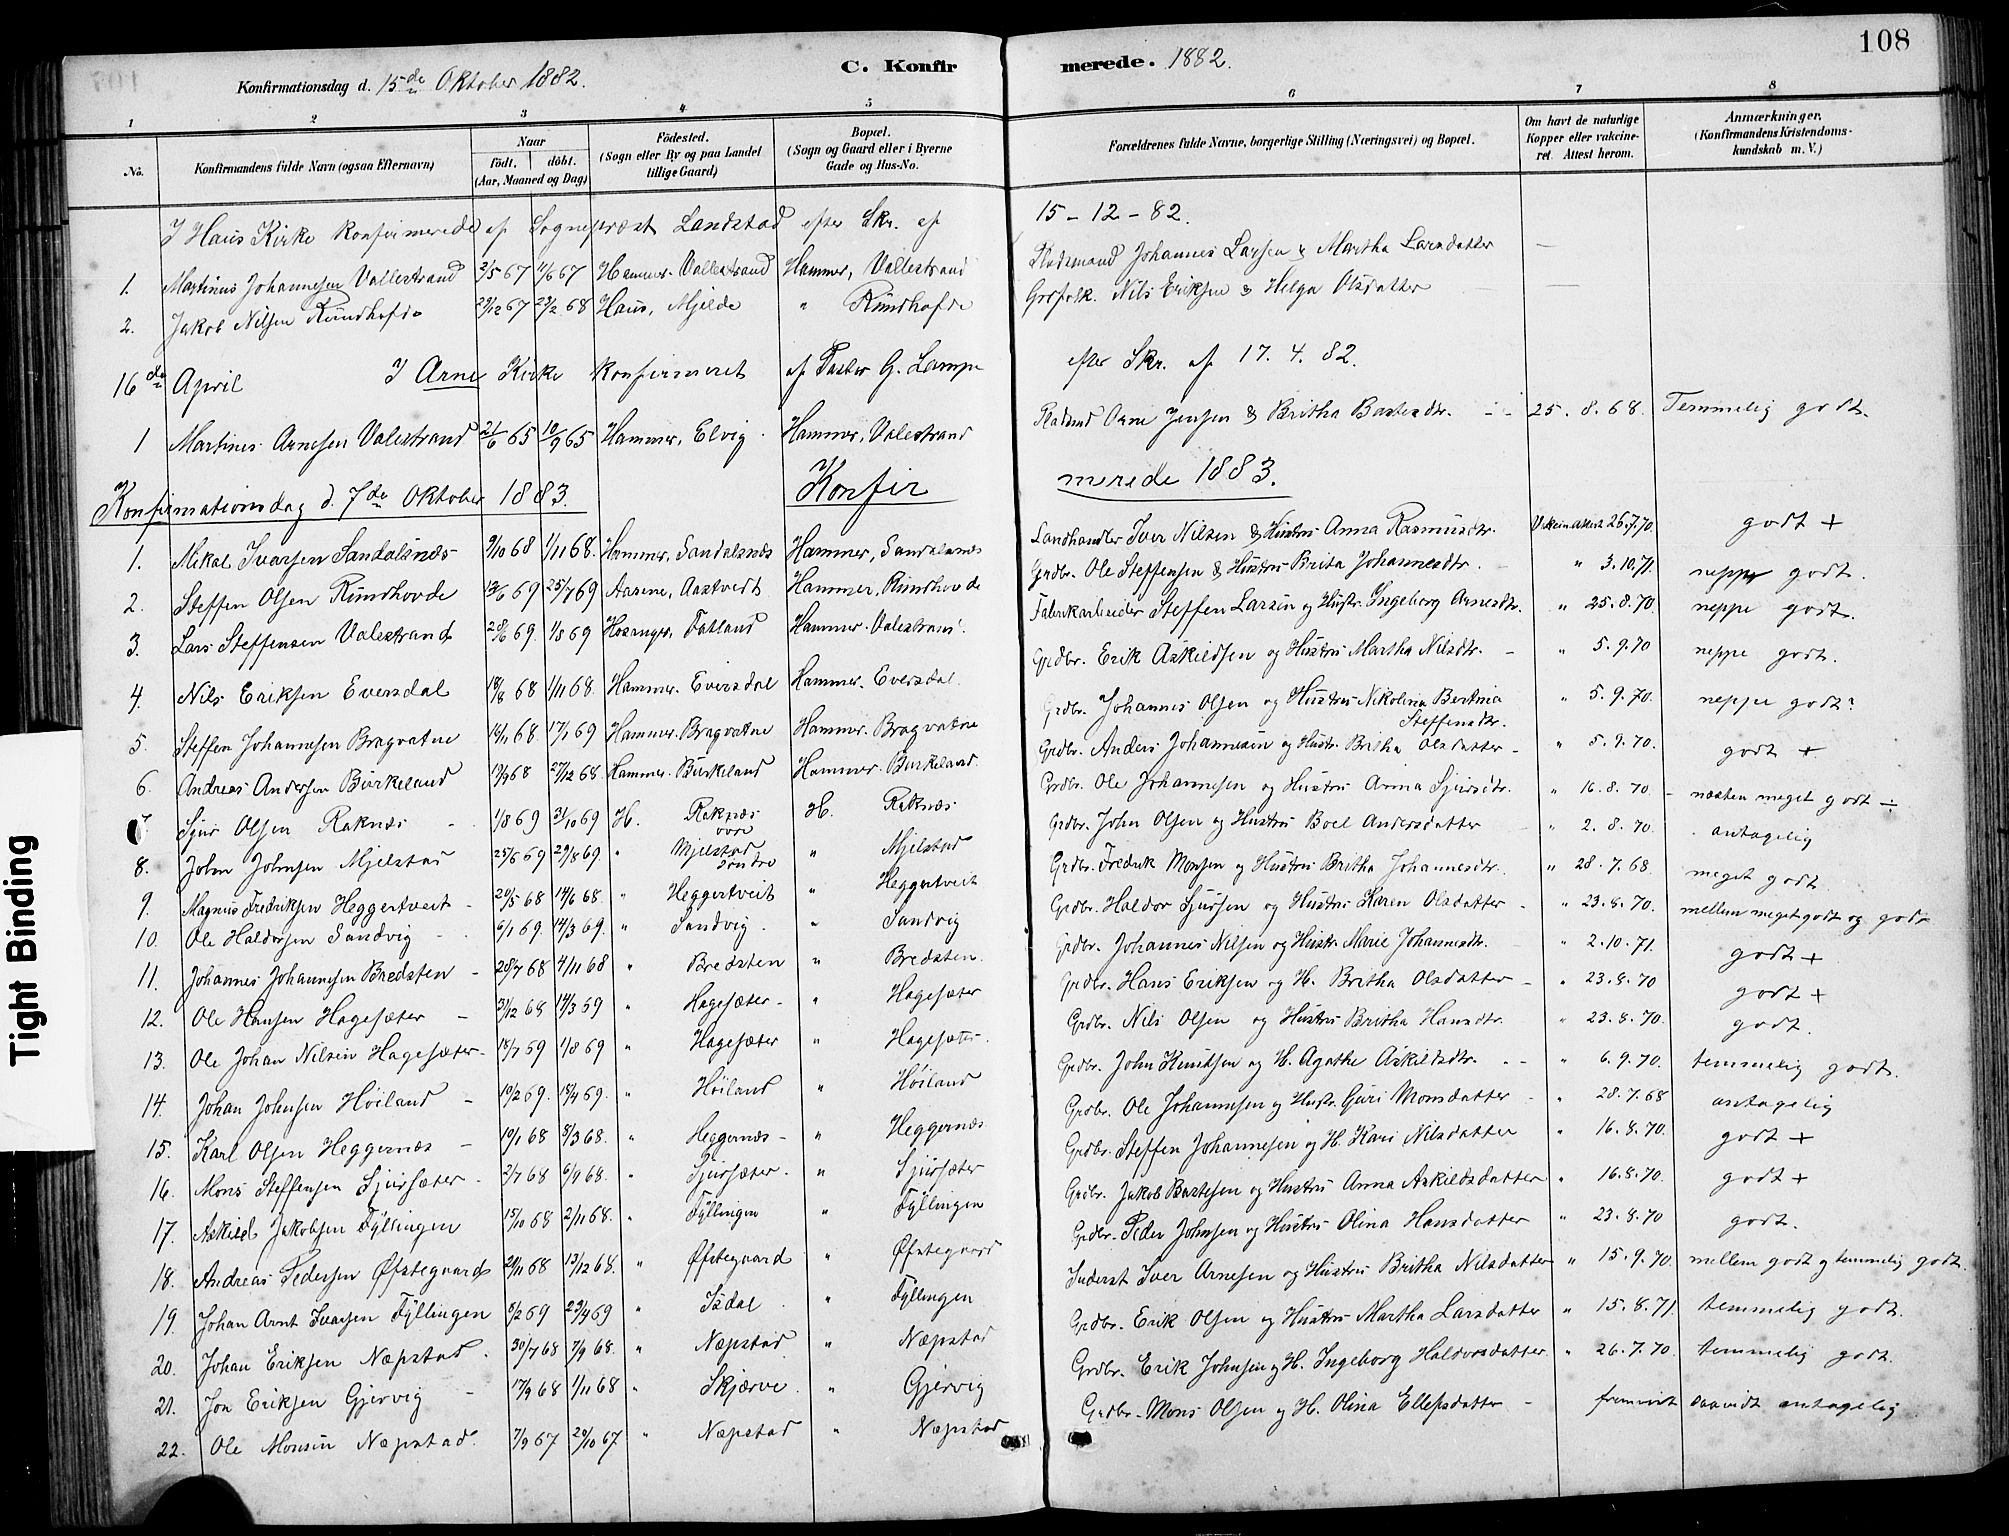 108
C. Konfirmerede. 1882.
Konfirmationsdag d. 15de Oktober 1882.
1 2 3 4 5 6 7 8
No.
Konfirmandens fulde Navn (ogsaa Efternavn)
Naar født. døbt. (Aar, Maaned og Dag)
Födested. (Sogn eller By og paa Landet tillige Gaard)
Bopæl. (Sogn og Gaard eller i Byerne Gade og Hus-No.
Forældrenes fulde Navne, borgerlige Stilling (Næringsvei) og Bopæl.
Om havt de naturlige Kopper eller vakcineret. Attest herom.
Anmærkninger. (Konfirmandens Kristendomskundskab m. V.)
I Haus Kirke konfirmerede af Sognepræst Landstad efter Skr. af 15-12-82.
1. Martinus Johannesen Vallestrand 2/5 67 11/6 67 Hammer. Vallestrand Hammer, Vallestrand Pladsmand Johannes Larsen & Martha Larsdatter —
2. Jakob Nilsen Rundhofde 29/12 67 23/2 68 Haus, Mjelde " Rundhofde Grdfolk. Nils Eriksen & Helga Olsdatter —
16de April I Arne Kirke konfirmeret af Pastor G. Lampe efter Skr. af 17. 4. 82.
1 Martines Arnesen Valestrand 21/6 65 10/9 65 Hammer, Elvig. Hammer, Valestrand Pladsmd Arne Jensen & Britha Bastesdtr. 25. 8. 68. Temmelig godt.
Konfirmationsdag d. 7de Oktober 1883. Konfirmerede 1883.
1. Mikal Ivarsen Sandalsnæs 9/10 68 1/11 68. Hammer, Sandalsnæs Hammer, Sandalsnæs Landhandler Iver Nilsen & Hustru Anna Rasmusdtr. Vakcinattest 26.7.70. godt +
2. Steffen Olsen Rundhovde 12/6 69 25/7 69 Aarne, Aastvedt Hammer, Rundhovde Grdbr. Ole Steffensen & Hustru Brita Johannesdtr. " 3.10.71. neppe godt.
3. Lars Steffensen Valestrand 28/6 69. 1/8 69 Hosanger, Fatland Hammer. Valestrand. Fabrikarbeider Steffen Larsen og Hustr. Ingeborg Arnesdtr. " 25.8.70. neppe godt.
4. Nils Eriksen Eversdal 18/8 68 1/11 68. Hammer. Eversdal Hammer. Eversdal. Grdbr. Erik Askildsen og Hustru Martha Nilsdtr. " 5.9.70 neppe godt.
5. Steffen Johannesen Bragvatne 16/1 68. 17/1 69 Hammer. Bragvatne Hammer. Bragvatne Grdbr. Johannes Olsen og Hustru Nikolina Bertina Steffensdtr. " 5.9.70. neppe godt?
6. Andreas Andersen Burkeland 19/9 68 27/12 68. Hammer. Burkeland Hammer. Burkeland. Grdbr. Anders Johannesen og Hustr. Britha Olsdatter " 5.9.70. godt +
7 Sjur Olsen Raknæs 1/8 69 31/10 69 H. Raknæs H. Raknæs Grdbr. Ole Johannesen og Hustru Anna Sjursdtr. " 16.8.70. næsten meget godt ÷
8. John Johnsen Mjelstad 25/6 69 29/8 69. " øvre Mjelstad " Mjelstad Grdbr. John Olsen og Hustru Boel Andersdatter " 2.8.70. antagelig
9. Magnus Fredriksen Heggertveit 20/5 68 14/6 68. " søndre Heggertveit " Heggertveit Grdbr. Fredrik Monsen og Hustru Britha Johannesdtr. " 28.7.68. meget godt
10. Ole Haldorsen Sandvig 6/1 69. 14/3 69. " Sandvig. " Sandvig Grdbr. Haldor Sjursen og Hustru Karen Olsdatter " 23.8.70. mellem meget godt og godt
11. Johannes Johannesen Bredsten 28/7 68 4/11 68 " Bredsten " Bredsten. Grdbr. Johannes Nilsen og Hustr. Marie Johannesdtr. " 2.10.71. godt +
12. Ole Hansen Hagesæter 31/12 68 14/3 69 " Hagesæter " Hagesæter Grdbr. Hans Eriksen og H. Britha Olsdatter " 23.8.70 godt +
13. Ole Johan Nilsen Hagesæter 18/7 69 1/8 69 " Hagesæter " Hagesæter. Grdbr. Nils Olsen og Hustru Britha Hansdtr. " 23.8.70. godt.
14. Johan Johnsen Høiland 19/2 69. 18/4 69. " Høiland " Høiland Grdbr. John Knutsen og H. Agathe Askildsdtr. " 6.9.70. temmelig godt.
15. Karl Olsen Heggernæs 19/1 68 8/3 68. " Heggernæs " Heggernæs Grdbr. Ole Johannesen og Hustr. Guri Monsdatter " 28.7.68 antagelig
16. Mons Steffensen Sjursæter 2/7 68 6/9 68. " Sjursæter. " Sjursæter Grdbr. Steffen Johannesen og H. Kari Nilsdatter " 16.8.70. godt +
17. Askild Jakobsen Fyllingen 15/10 68 2/11 68. " Fyllingen " Fyllingen Grdbr. Jakob Bastesen og Hustru Anna Askildsdatter " 16.8.70. godt +
18. Andreas Pedersen Øfstegaard 29/11 68 13/12 68. " Øfstegaard " Øfstegaard Grdbr. Peder Johnsen og Hustru Olina Hansdatter " 23.8.70 godt.
19. Johan Arnt Ivarsen Fyllingen 8/2 69 29/4 69 " Isdal. " Fyllingen Inderst Iver Arnesen og Hustru Britha Nilsdatter " 15.9.70. mellem godt og temmelig godt.
20. Johan Eriksen Næpstad. 30/7 68 7/9 68. " Næpstad. " Næpstad Grdbr. Erik Olsen og Hustru Martha Larsdatter " 15.8.71. temmelig godt.
21. Jon Eriksen Gjervig 17/9 68 1/11 68 " Skjærve. " Gjervig Grdbr. Erik Johnsen og H. Ingeborg Haldorsdatter " 26.7.70. temmelig godt.
22. Ole Monsen Næpstad. 7/9 67 20/10 67 " Næpstad " Næpstad Grdbr. Mons Olsen og H. Olina Ellefsdatter fremvist saavidt antagelig
Tight Binding